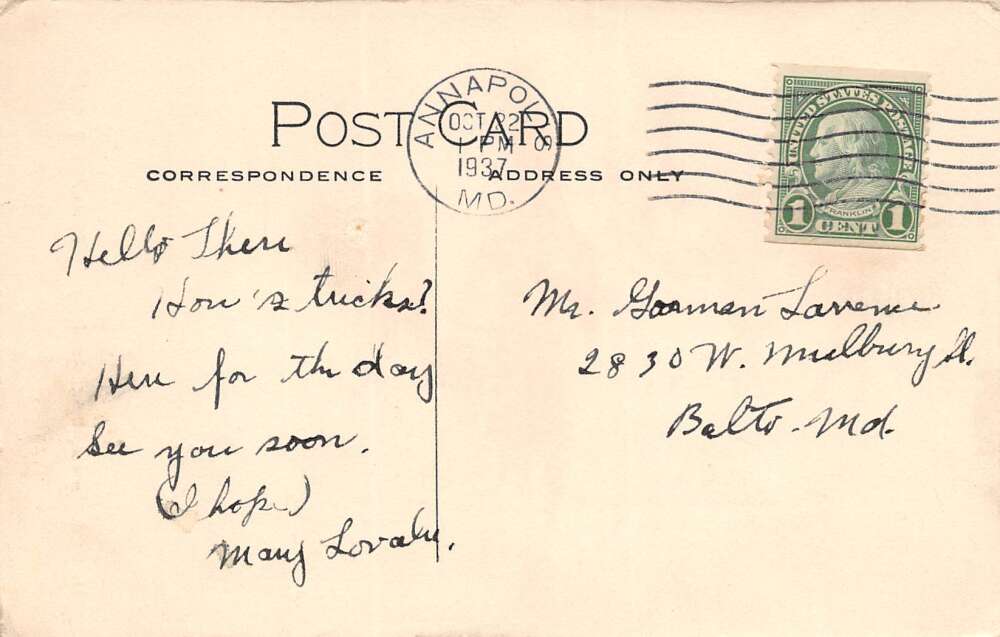 POST CARD
CORRESPONDENCE
ADDRESS ONLY
ANNAPOLIS
OCT 22
1 PM
1937
MD.
UNITED STATES POSTAGE
FRANKLIN
1 CENT 1
Hello There
How's tricks?
Here for the day
See you soon.
(I hope)
Mary
Mr. Gorman
2830 W. Mulbury St.
Balto. Md.